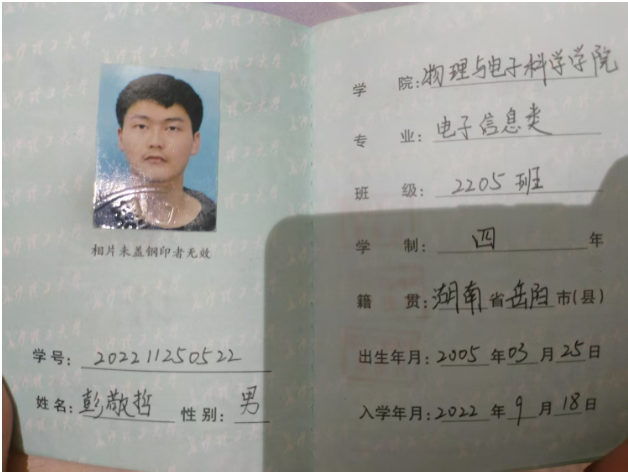 相片未盖钢印者无效
学号: 202211250522
姓名: 彭敬哲 性别: 男
学 院: 物理与电子科学学院
专 业: 电子信息类
班 级: 2205班
学 制: 四 年
籍 贯: 湖南省岳阳市(县)
出生年月: 2005年03月25日
入学年月: 2022年9月18日